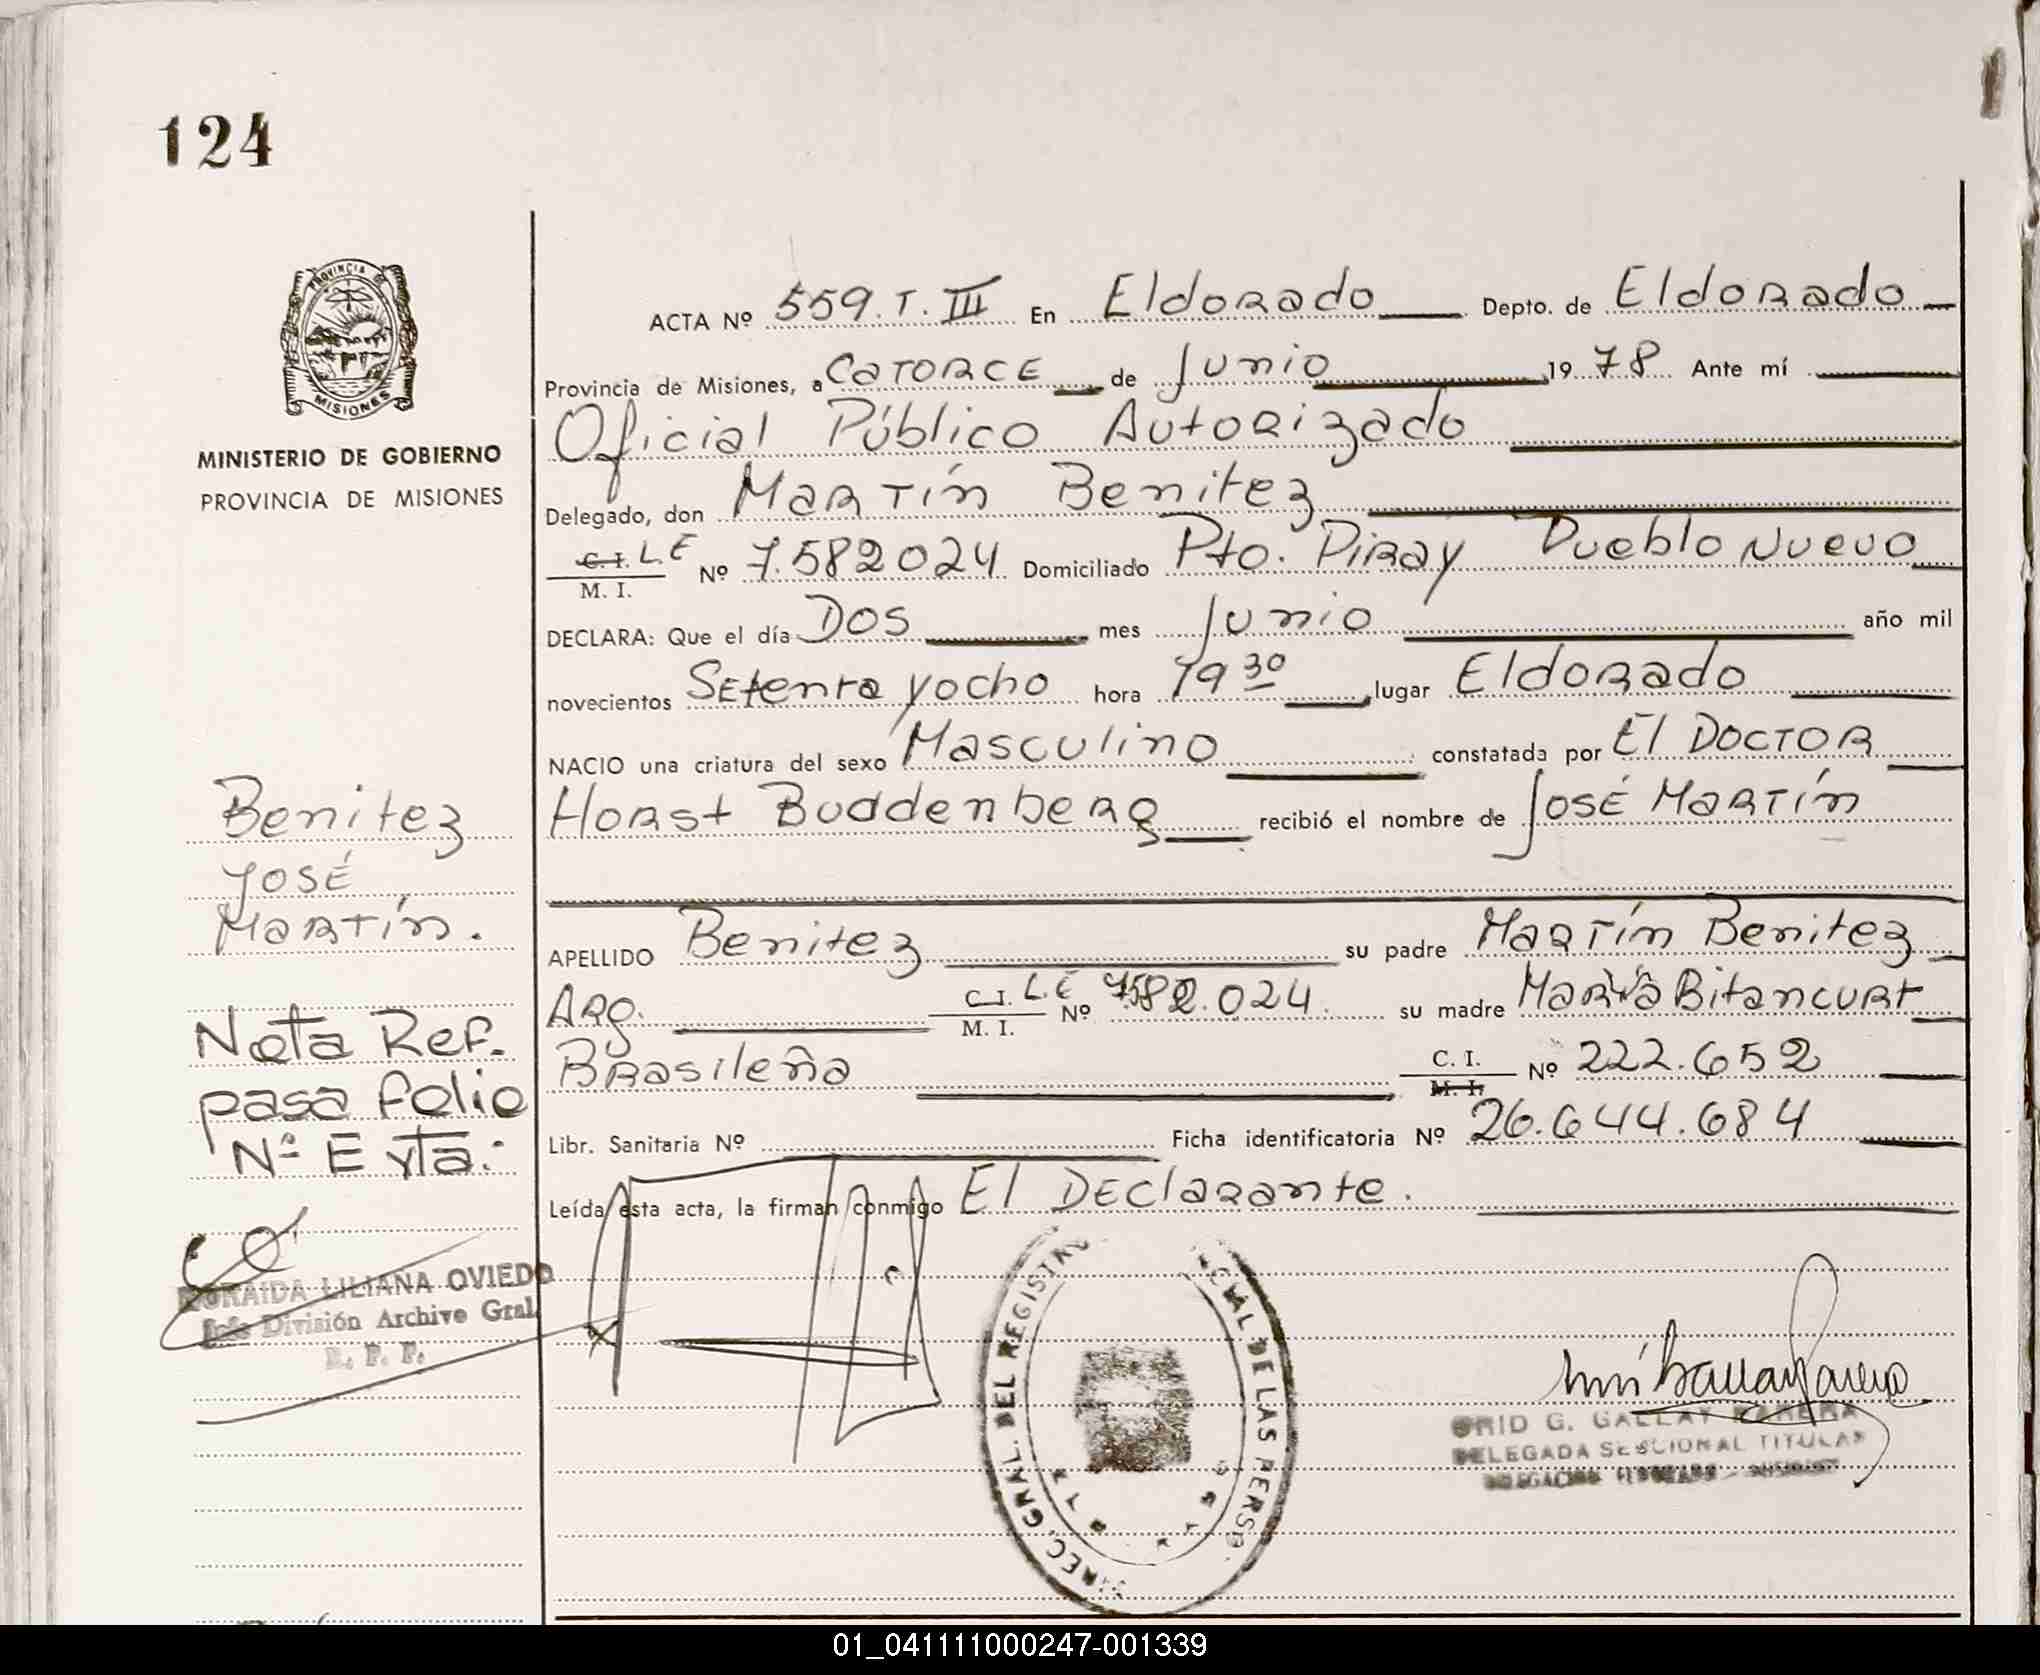 124
PROVINCIA DE
MISIONES
MINISTERIO DE GOBIERNO
PROVINCIA DE MISIONES
Benitez
José
Martín.
Nota Ref.
pasa folio
Nº E yta.
LILIANA OVIEDO
División Archivo Gral.
ACTA Nº 559.T.III En Eldorado Depto. de Eldorado
Provincia de Misiones, a Catorce de Junio 1978 Ante mí
Oficial Público Autorizado
Delegado, don Martín Benitez
C.I. L.E Nº 7.582024 Domiciliado Pto. Piray Pueblo Nuevo
M. I.
DECLARA: Que el día Dos mes Junio año mil
novecientos Setenta y ocho hora 19 30 lugar Eldorado
NACIO una criatura del sexo Masculino constatada por El Doctor
Horst Buddenberg recibió el nombre de José Martín
APELLIDO Benitez su padre Martín Benitez
Arg. C.I. L.E Nº 7582.024. su madre María Bitancurt
M. I.
Brasileña C. I. Nº 222.652
M. I.
Libr. Sanitaria Nº Ficha identificatoria Nº 26.644.684
Leída esta acta, la firman conmigo El Declarante.
DIREC. GRAL. DEL REGISTRO DE LAS PERSO
G. GALLAY
DELEGADA SECCIONAL TITULAR
01_041111000247-001339